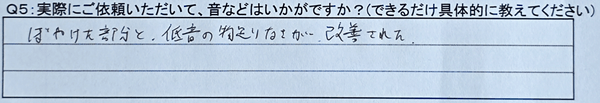 Q5：実際にご依頼いただいて、音などはいかがですか？（できるだけ具体的に教えてください）
ぼやけた部分と、低音の物足りなさが、改善された